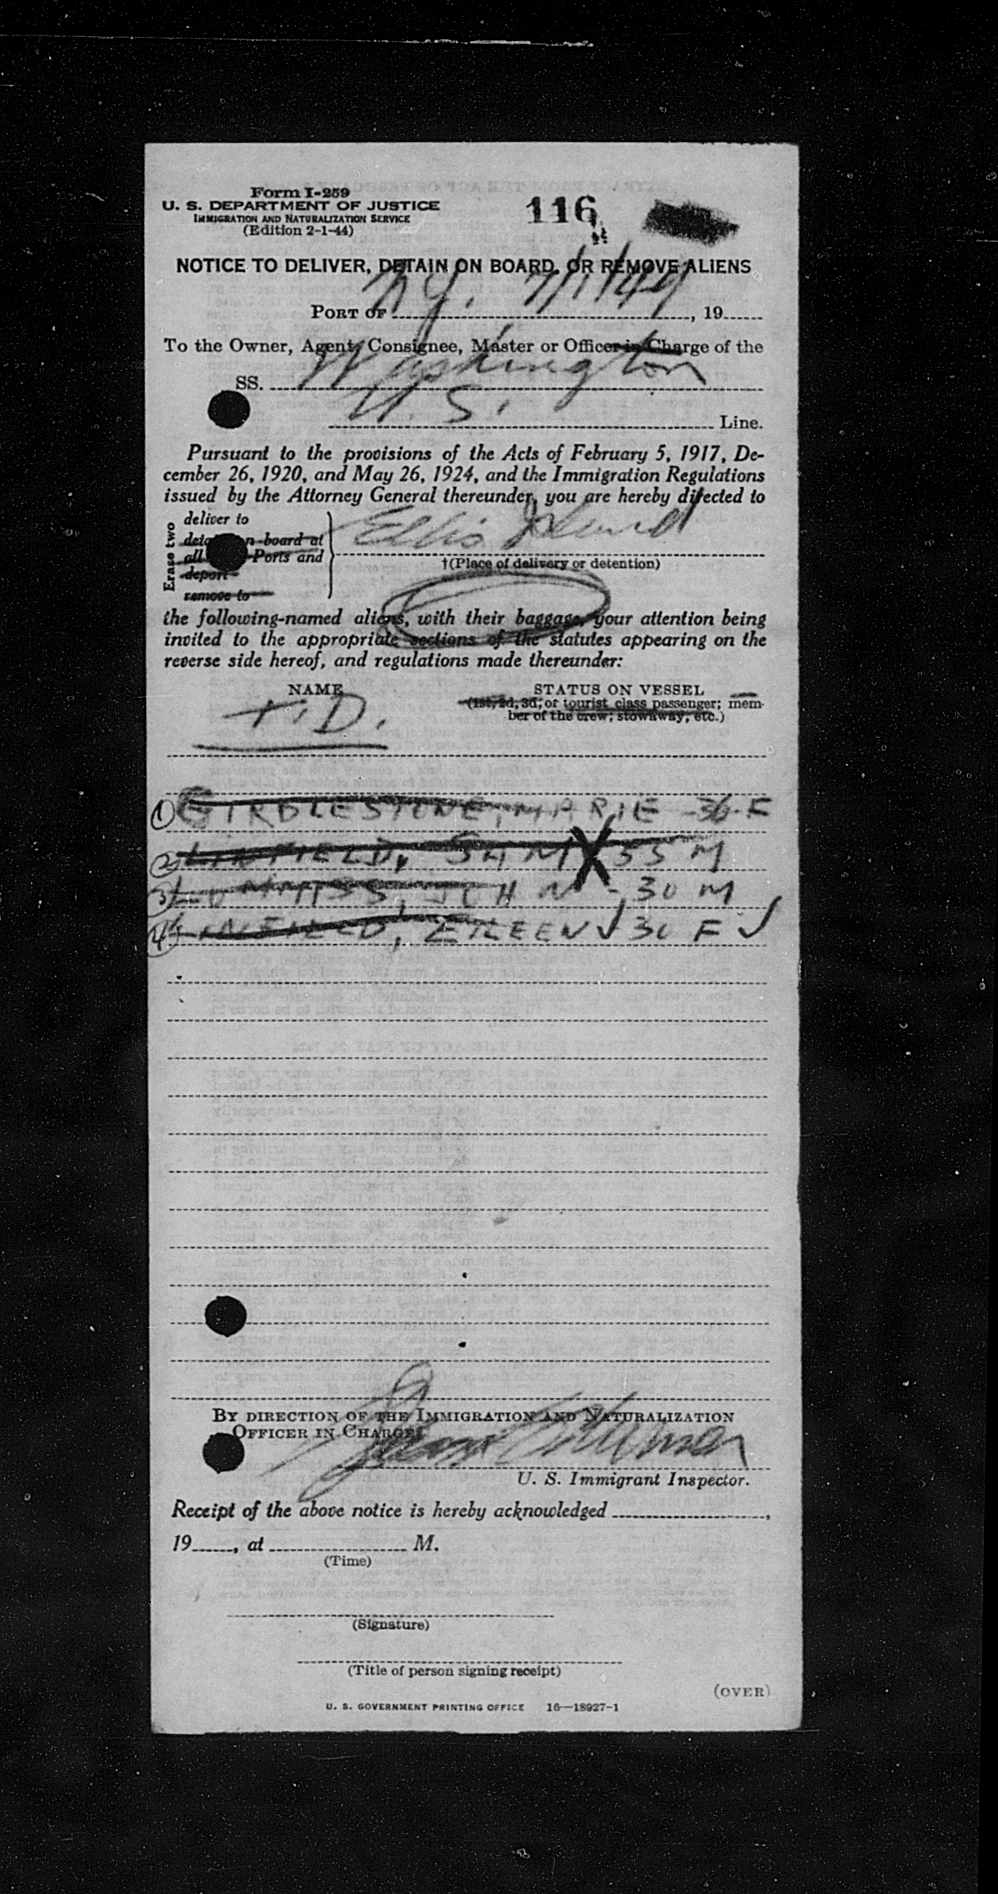 Form I-259
U. S. DEPARTMENT OF JUSTICE
IMMIGRATION AND NATURALIZATION SERVICE
(Edition 2-1-44)
116
NOTICE TO DELIVER, DETAIN ON BOARD, OR REMOVE ALIENS
PORT OF N.Y. 7/1/49, 19
To the Owner, Agent, Consignee, Master or Officer in Charge of the
SS. Washington
U. S. Line.
Pursuant to the provisions of the Acts of February 5, 1917, De-
cember 26, 1920, and May 26, 1924, and the Immigration Regulations
issued by the Attorney General thereunder, you are hereby directed to
Erase two
deliver to
detain on board at
all Ports and
deport
remove to
Ellis Island
†(Place of delivery or detention)
the following-named aliens, with their baggage, your attention being
invited to the appropriate sections of the statutes appearing on the
reverse side hereof, and regulations made thereunder:
NAME
STATUS ON VESSEL
(1st, 2d, 3d, or tourist class passenger; mem-
ber of the crew; stowaway, etc.)
T. D.
① GIRDLESTONE, MARIE - 36 - F
② LINFIELD, SAM X 55 M
③ JOHN - 30 M
④ LINFIELD, EILEEN √ 30 F √
BY DIRECTION OF THE IMMIGRATION AND NATURALIZATION
OFFICER IN CHARGE:
U. S. Immigrant Inspector.
Receipt of the above notice is hereby acknowledged ,
19 , at M.
(Time)
(Signature)
(Title of person signing receipt)
(OVER)
U. S. GOVERNMENT PRINTING OFFICE 16—18927-1